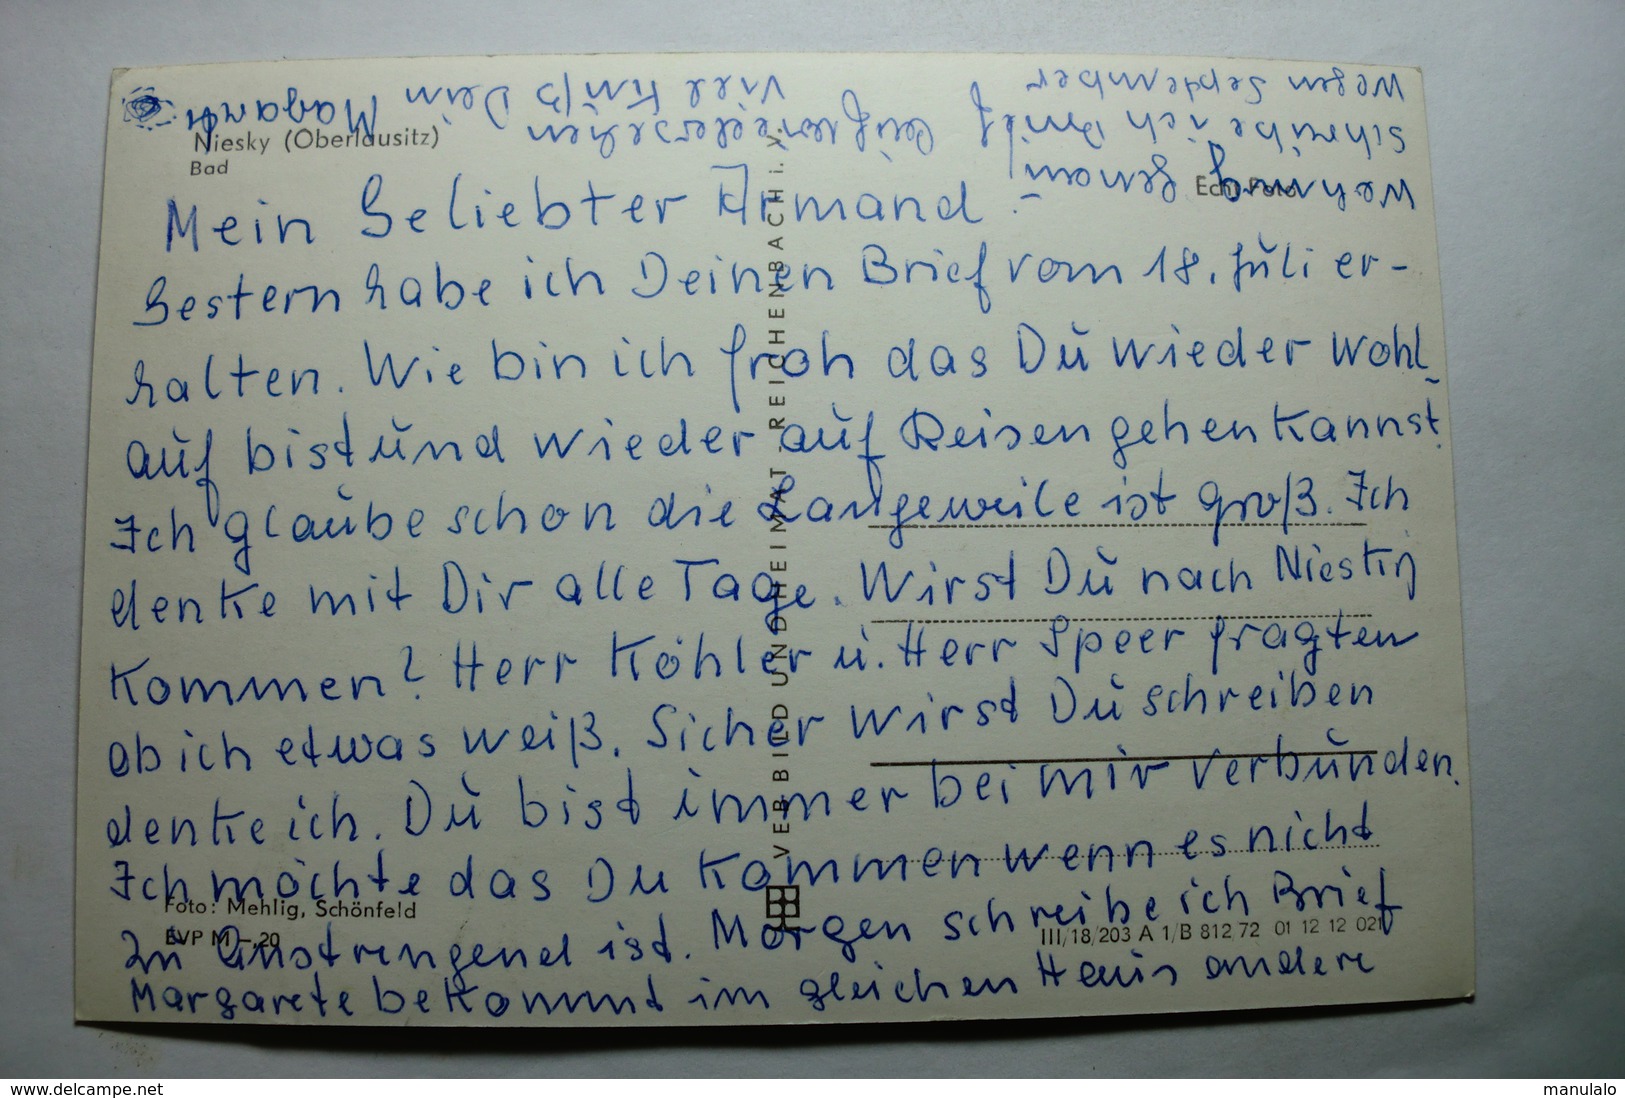 Niesky (Oberlausitz)
Bad
Echt Foto
Mein Geliebter Armand -
Gestern habe ich Deinen Brief vom 18. Juli er-
halten. Wie bin ich froh das Du wieder wohl-
auf bist und wieder auf Reisen gehen kannst.
Ich glaube schon die Langeweile ist groß. Ich
denke mit Dir alle Tage. Wirst Du nach Niesky
kommen? Herr Köhler u. Herr Speer fragten
ob ich etwas weiß. Sicher wirst Du schreiben
denke ich. Du bist immer bei mir verbunden.
Ich möchte das Du kommen wenn es nicht
zu Anstrengend ist. Morgen schreibe ich Brief
Margarete bekommt im gleichen Haus andere
Wohnung
schreibe ich Brief auf wiedersehen
Wegen September
Viele Kuß Dein
VEB BILD UND HEIMAT · REICHENBACH i. V.
Foto: Mehlig, Schönfeld
EVP M -,20
III/18/203 A 1/B 812/72 01 12 12 021
www.delcampe.net
manulalo